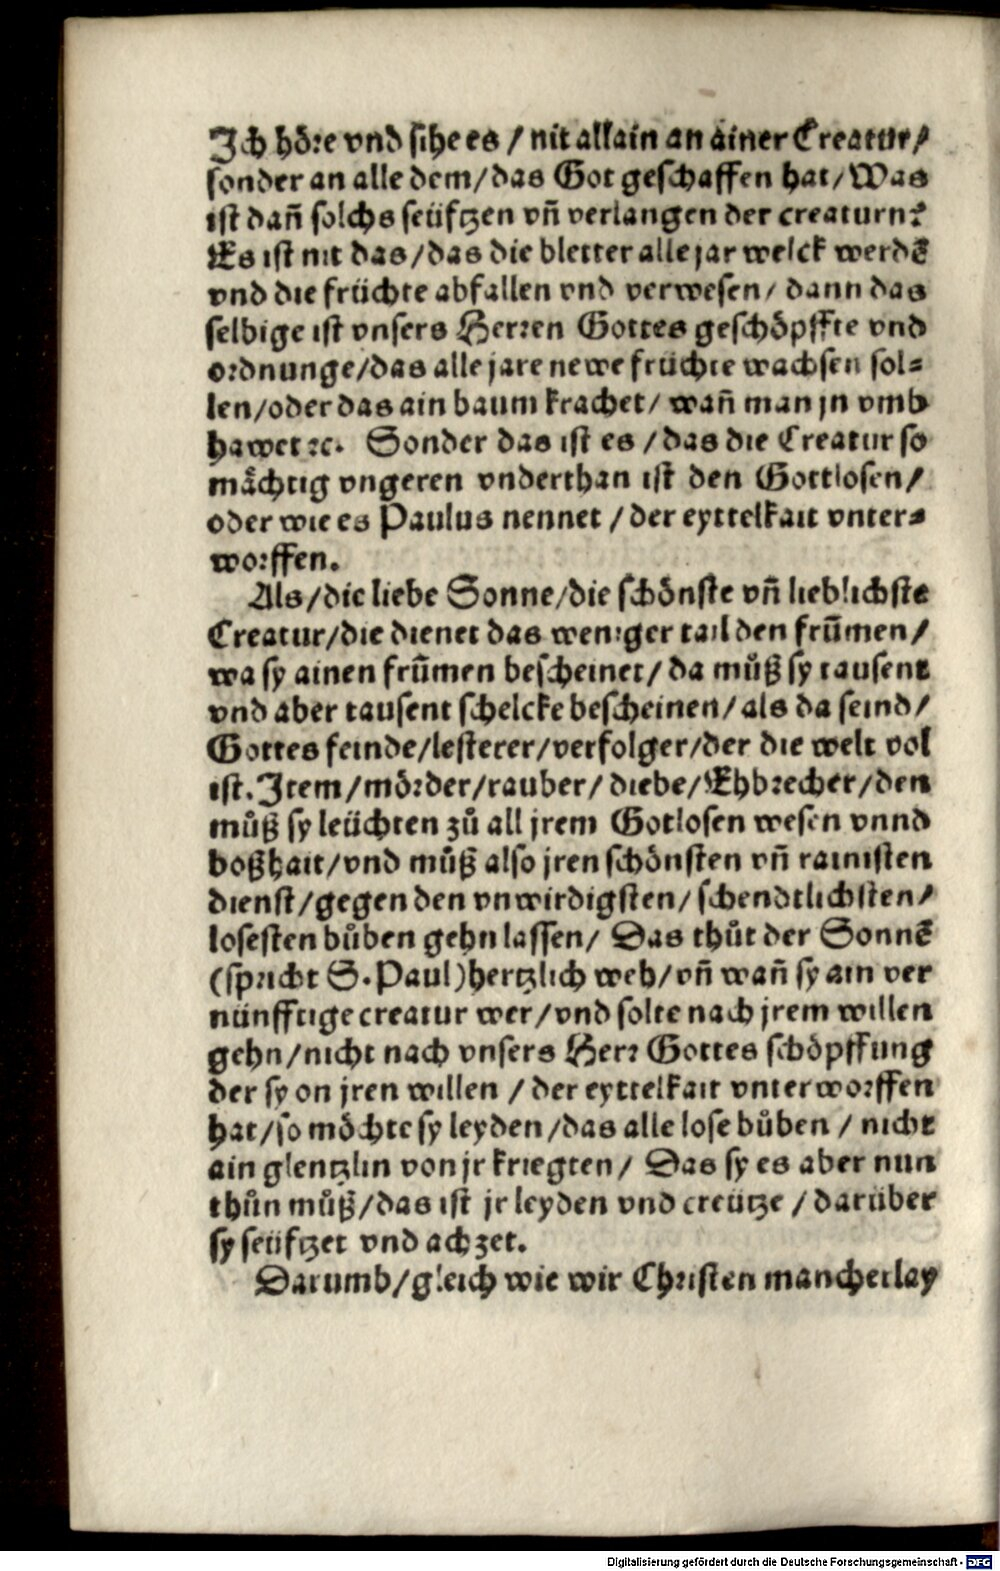 Ich höre vnd sihe es / nit allain an ainer Creatur /
sonder an alle dem / das Got geschaffen hat / Was
ist dañ solchs seüftzen vñ verlangen der creaturn?
Es ist nit das / das die bletter alle jar welck werdē
vnd die früchte abfallen vnd verwesen / dann das
selbige ist vnsers Herren Gottes geschöpffte vnd
ordnunge / das alle jare newe früchte wachsen sol⸗
len / oder das ain baum krachet / wañ man jn vmb
hawet ꝛc. Sonder das ist es / das die Creatur so
mächtig vngeren vnderthan ist den Gottlosen /
oder wie es Paulus nennet / der eyttelkait vnter⸗
worffen.
Als / die liebe Sonne / die schönste vñ lieblichste
Creatur / die dienet das weniger tail den frūmen /
wa sy ainen frūmen bescheinet / da můß sy tausent
vnd aber tausent schelcke bescheinen / als da seind /
Gottes feinde / lesterer / verfolger / der die welt vol
ist. Item / mörder / rauber / diebe / Ehbrecher / den
můß sy leüchten zů all jrem Gotlosen wesen vnnd
boßhait / vnd můß also jren schönsten vñ rainisten
dienst / gegen den vnwirdigsten / schendtlichsten /
losesten bůben gehn lassen / Das thůt der Sonnē
(spricht S. Paul) hertzlich weh / vñ wañ sy ain ver
nünfftige creatur wer / vnd solte nach jrem willen
gehn / nicht nach vnsers Herr Gottes schöpffung
der sy on jren willen / der eyttelkait vnterworffen
hat / so möchte sy leyden / das alle lose bůben / nicht
ain glentzlin von jr kriegten / Das sy es aber nun
thůn můß / das ist jr leyden vnd creütze / darüber
sy seüftzet vnd achzet.
Darumb / gleich wie wir Christen mancherlay
Digitalisierung gefördert durch die Deutsche Forschungsgemeinschaft - DFG